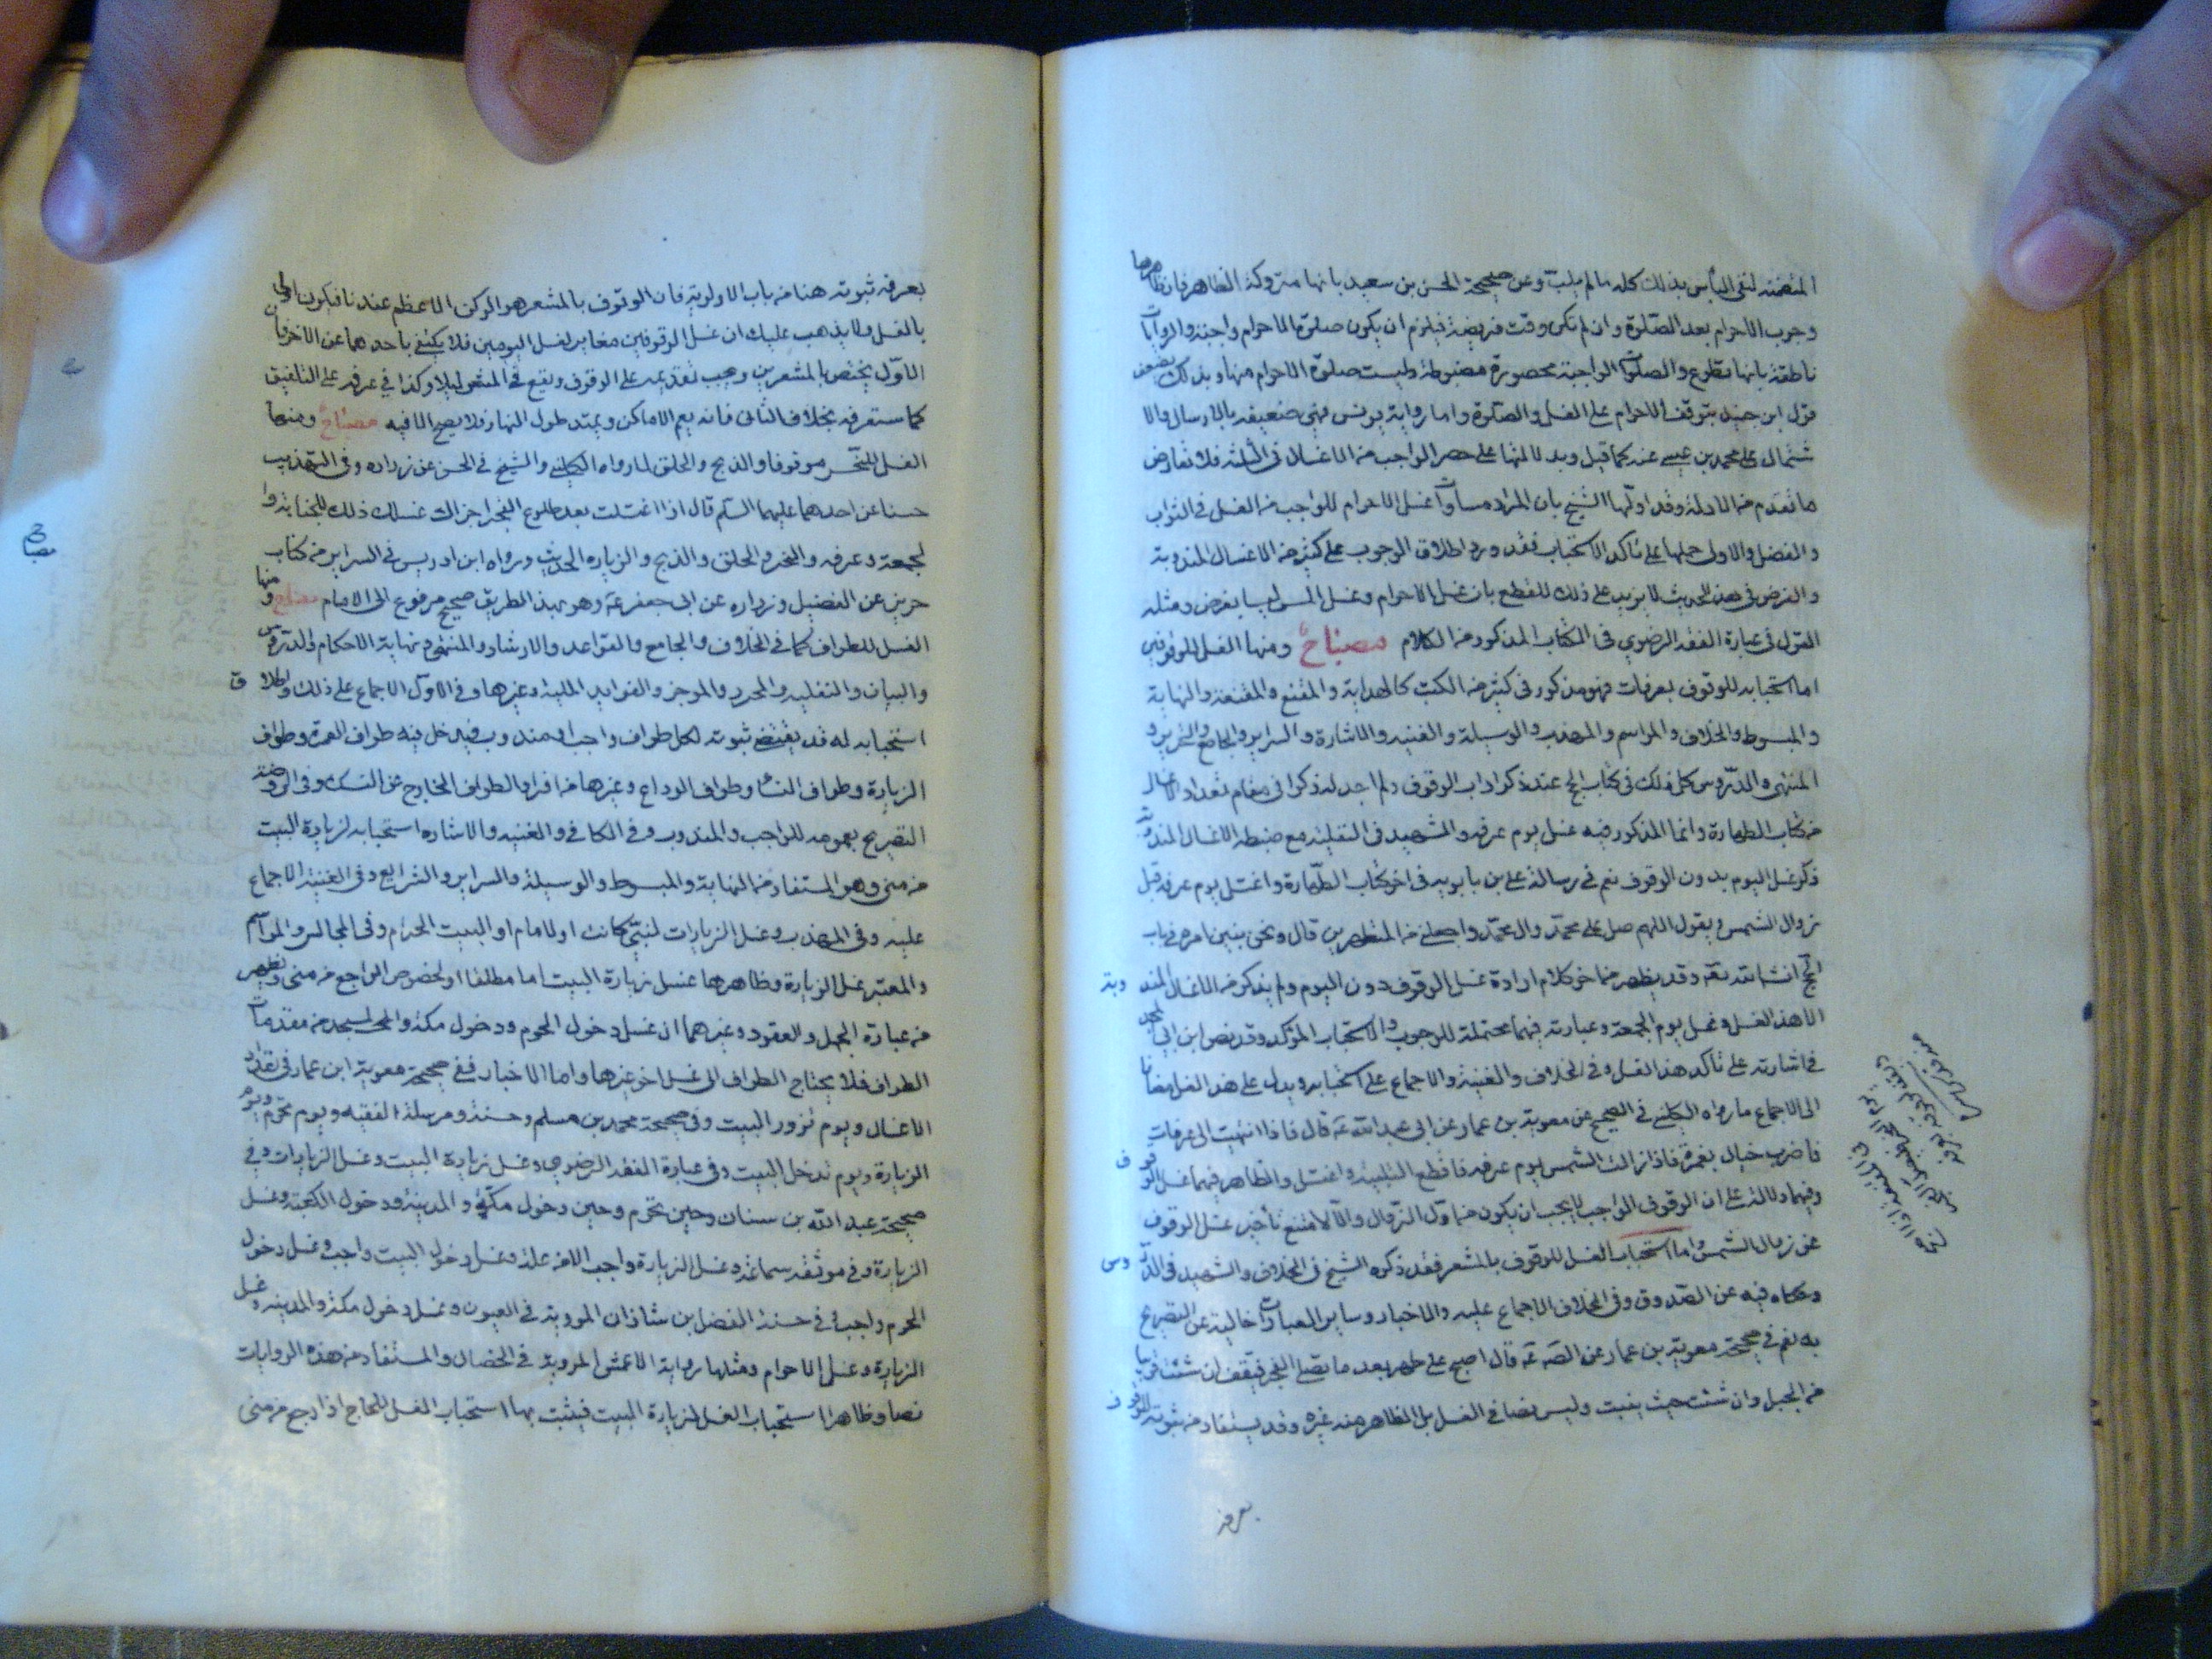 المتضمنة لنفى البأس بذلك كله ما لم يلب وعن صحيحة الحسن بن سعيد بانها متروكة الظاهر فان ظاهرها
وجوب الاحرام بعد الصلوة وان لم تكن وقت فريضة فيلزم ان يكون صلوة الاحرام واجبة والروايات
ناطقة بانها تطوع والصلوات الواجبة محصورة مضبوطة وليست صلوة الاحرام منها وبذلك يضعف
قول ابن جنيد بتوقف الاحرام على الغسل والصلوة واما رواية يونس فهى ضعيفه بالارسال والا
شتمال على محمد بن عيسى عنه كما قيل وبدلالتها على حصر الواجب من الاغسال فى الثلثه فلا تعارض
ما تقدم من الادلة وقد اولها الشيخ بان المراد مساوات غسل الاحرام للواجب من الغسل فى الثواب
والفضل والاولى حملها على تاكد الاستحباب فقد ورد اطلاق الوجوب على كثير من الاغسال المندوبة
والفرض فى هذا الحديث لا يزيد على ذلك للقطع بان غسل الاحرام وغسل المس ليسا بفرض ومثله
القول فى عبارة الفقه الرضوي فى الكتاب المذكور من الكلام مصباح ومنها الغسل للوقوفين
اما استحبابه للوقوف بعرفات فهو مذكور فى كثير من الكتب كالهداية والمقنع والمقنعة والنهاية
والمبسوط والخلاف والمراسم والمهذب والوسيلة والغنيه والاشارة والسراير والجامع والتحرير و
المنتهى والدروس كل ذلك فى كتاب الحج عند ذكر اداب الوقوف ولم اجد له ذكرا فى مقام تعداد الاغسال
من كتاب الطهارة وانما المذكور فيه غسل يوم عرفه والشهيد فى النفلية مع ضبطه الاغسال المندوبة
ذكر غسل اليوم بدون الوقوف نعم فى رسالة على بن بابويه فى اخر كتاب الطهارة واغتسل يوم عرفه قبل
زوال الشمس ويقول اللهم صل على محمد وال محمد واجعلنى من المتطهرين قال ونحن نبين امره فى باب
الحج انشاء الله تعه وقد يظهر من اخر كلام ارادة غسل الوقوف دون اليوم ولم يذكر من الاغسال المندوبة
الا هذا الغسل وغسل يوم الجمعة وعبارته فيهما محتملة للوجوب والاستحباب المؤكد وقد نص ابن ابى المجد
فى اشارته على تأكد هذا الغسل وفى الخلاف والغنية والاجماع على استحبابه ويدل على هذا الغسل مضافا
الى الاجماع ما رواه الكلينى فى الصحيح عن معوية بن عمار عن ابى عبد الله عه قال فاذا انتهيت الى عرفات
فاضرب خباك بنمرة فاذا زالت الشمس يوم عرفه فاقطع التلبية واغتسل والظاهر فيهما غسل الوقوف
وفيهما دلالة على ان الوقوف الواجب لا يجب ان يكون من اول الزوال والا لامتنع تأخير غسل الوقوف
عن زوال الشمس واما استحباب الغسل للوقوف بالمشعر فقد ذكره الشيخ فى الخلاف والشهيد فى الدروس
وحكاه فيه عن الصدوق وفى الخلاف الاجماع عليه والاخبار وساير العبارات خالية عن التصريح
به نعم فى صحيحة معوية بن عمار عن الصه عه قال اصبح على طهر بعد ما تصلى الفجر فيقف ان شئت قريبا
من الجبل وان شئت حيث يبيت وليس نصا فى الغسل بل الظاهر منه غيره وقد يستفاد من ثبوته للوقوف
بعرفه
بعرفه ثبوته هنا من باب الاولوية فان الوقوف بالمشعر هو الركن الاعظم عندنا فيكون اولى
بالغسل ولا يذهب عليك ان غسل الوقوفين مغاير لغسل اليومين فلا يكتفى باحدهما عن الاخر فان
الاول يختص بالمشعرين ويجب تقديمه على الوقوف ويقع فى المشعر ليلا وكذا فى عرفه على التلفيق
كما ستعرفه بخلاف الثانى فانه يعم الاماكن ويمتد طول النهار فلا يصح الا فيه مصباح ومنها
الغسل للنحر موقوفا والذبح والحلق لما رواه الكلينى والشيخ فى الحسن عن زراره وفى التهذيب
حسنا عن احدهما عليهما السلام قال اذا اغتسلت بعد طلوع الفجر اجزاك غسلك ذلك للجنابة وا
لجمعة وعرفه والنحر والحلق والذبح والزيارة الحديث ورواه ابن ادريس فى السراير من كتاب
حريز عن الفضيل وزراره عن ابى جعفر عه وهو بهذا الطريق صحيح مرفوع الى الامام مصباح ومنها
الغسل للطواف كما فى الخلاف والجامع والقواعد والارشاد والمنتهى ونهاية الاحكام والدروس
والبيان والنفليه والمحرر والموجز والفوايد المليه وغيرها وفى الاول الاجماع على ذلك واطلاق
استحبابه له قد يقتضى ثبوته لكل طواف واجب او مندوب فيدخل فيه طواف العمرة وطواف
الزيارة وطواف النساء وطواف الوداع وغيرها من افراد الطواف الخارج عن النسك وفى الروضة
التصريح بعمومه للواجب والمندوب وفى الكافى والغنيه والاشاره استحبابه لزيارة البيت
من منى وهو المستفاد من النهاية والمبسوط والوسيلة والسراير والشرايع وفى الغنية الاجماع
عليه وفى المهذب وغسل الزيارات لنبى كانت او لامام او البيت الحرام وفى المجالس والمراسم
والمعتبر غسل الزيارة وظاهرها غسل زيارة البيت اما مطلقا او لخصوص الراجع من منى ويظهر
من عبارة الجمل والعقود وغيرهما ان غسل دخول الحرم ودخول مكة والمسجد من مقدمات
الطواف فلا يحتاج الطواف الى غسل اخر غيرها واما الاخبار ففى صحيحة معوية ابن عمار فى تعداد
الاغسال ويوم تزور البيت وفى صحيحة محمد بن مسلم وحسنة ومرسلة الفقيه ويوم تحرم ويوم
الزيارة ويوم تدخل البيت وفى عبارة الفقه الرضوي وغسل زيارة البيت وغسل الزيارات وفى
صحيحة عبد الله بن سنان وحين تحرم وحين دخول مكة والمدينة ودخول الكعبة وغسل
الزيارة وفى موثقه سماعة وغسل الزيارة واجب الا من علة وغسل دخول البيت واجب وغسل دخول
الحرم واجب وفى حسنة الفضل بن شاذان المروية فى العيون وغسل دخول مكة والمدينه وغسل
الزيارة وغسل الاحرام ومثلها رواية الاعمش المروية فى الخصال والمستفاد من هذه الروايات
نصا وظاهرا استحباب الغسل لزيارة البيت فيثبت بها استحباب الغسل للحاج اذا رجع من منى
مصباح